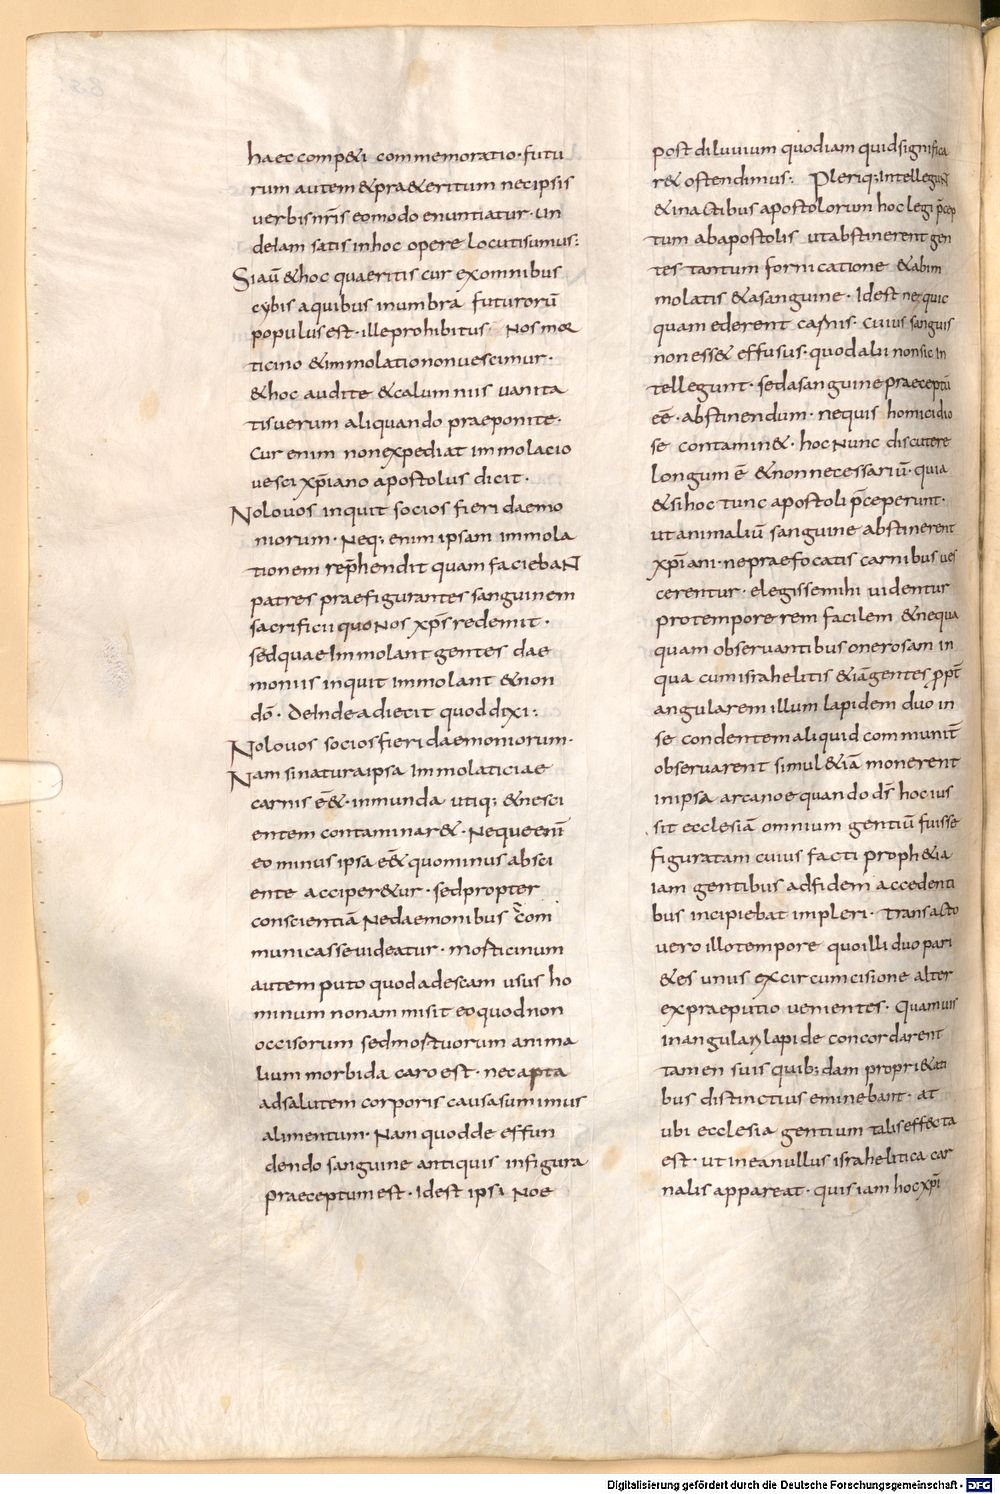 haec comp&i commemoratio· futu
rum autem &pra&eritum necipsis
uerbis nr̄is eomodo enuntiatur· un
de iam satis inhoc opere locutisumus:
Siaū &hoc quaeritis cur exomnibus
cybis aquibus inumbra futurorū
populus est· ille prohibitus· Nos mor
ticino &immolatio nonuescimur·
&hoc audite &calumniis uanita
tis uerum aliquando praeponite·
Cur enim nonexpediat immolacio
uesci xp̄iano apostolus dicit·
Nolo uos inquit socios fieri daemo
niorum· Neq; enim ipsam immola
tionem rep̄hendit quam faciebaNT
patres praefigurantes sanguinem
sacrificii quo Nos xp̄s redemit·
sed quae Immolant gentes dae
moniis inquit Immolant &non
dō· deInde adiecit quod dixi:
Nolo uos socios fieri daemoniorum·
Nam si natura ipsa Immolaticiae
carnis eē&· inmunda utiq; &nesci
entem contaminar&· Neque enī
eo minus ipsa eē& quominus absci
ente acciper&ur· sed propter
conscientiā Ne daemonibus com
municasse uideatur· Mosticinum
autem puto quod adescam usus ho
minum non amisit eo quod non
occisorum sed mostuorum anima
lium morbida caro est· nec apta
adsalutem corporis causa sumimus
alimentum· Nam quod de effun
dendo sanguine antiquis infigura
praeceptum est· Idest ipsi Noe
post diluuium quodiam quid significa
r& ostendimus: Pleriq; Intellegunt
&inactibus apostolorum hoc legi p̄cep
tum ab apostolis ut abstinerent gen
tes tantum fornicatione &abim
molatis &asanguine· Idest ne quic
quam ederent carnis· cuius sanguis
non ess& effusus· quod alii non sic in
tellegunt· sed asanguine praeceptū
eē· abstinendum· nequis homicidio
se contamin&· hoc Nunc discutere
longum ē &non necessariū· quia
&si hoc tunc apostoli p̄ceperunt·
ut animaliū sanguine abstinerent
xp̄iani· ne praefocatis carnibus ues
cerentur· elegisse mihi uidentur
pro tempore rem facilem &nequa
quam obseruantibus onerosam in
qua cum israhelitis &iā gentes ppt̄
angularem illum lapidem duo in
se condentem aliquid communit̄
obseruarent simul &iā monerent
in ipsa arca noe quando ds̄ hoc ius
sit ecclesiā omnium gentiū fuisse
figuratam cuius facti proph&ia
iam gentibus ad fidem accedenti
bus incipiebat impleri· Transacto
uero illo tempore quo illi duo pari
&es unus ex circumcisione alter
ex praeputio uenientes· Quamuis
In angulari lapide concordarent
tamen suis quib;dam propri&ati
bus distinctius eminebant· at
ubi ecclesia gentium talis effecta
est· ut in ea nullus israhelitica car
nalis appareat· quis iam hoc xp̄i
Digitalisierung gefördert durch die Deutsche Forschungsgemeinschaft - DFG